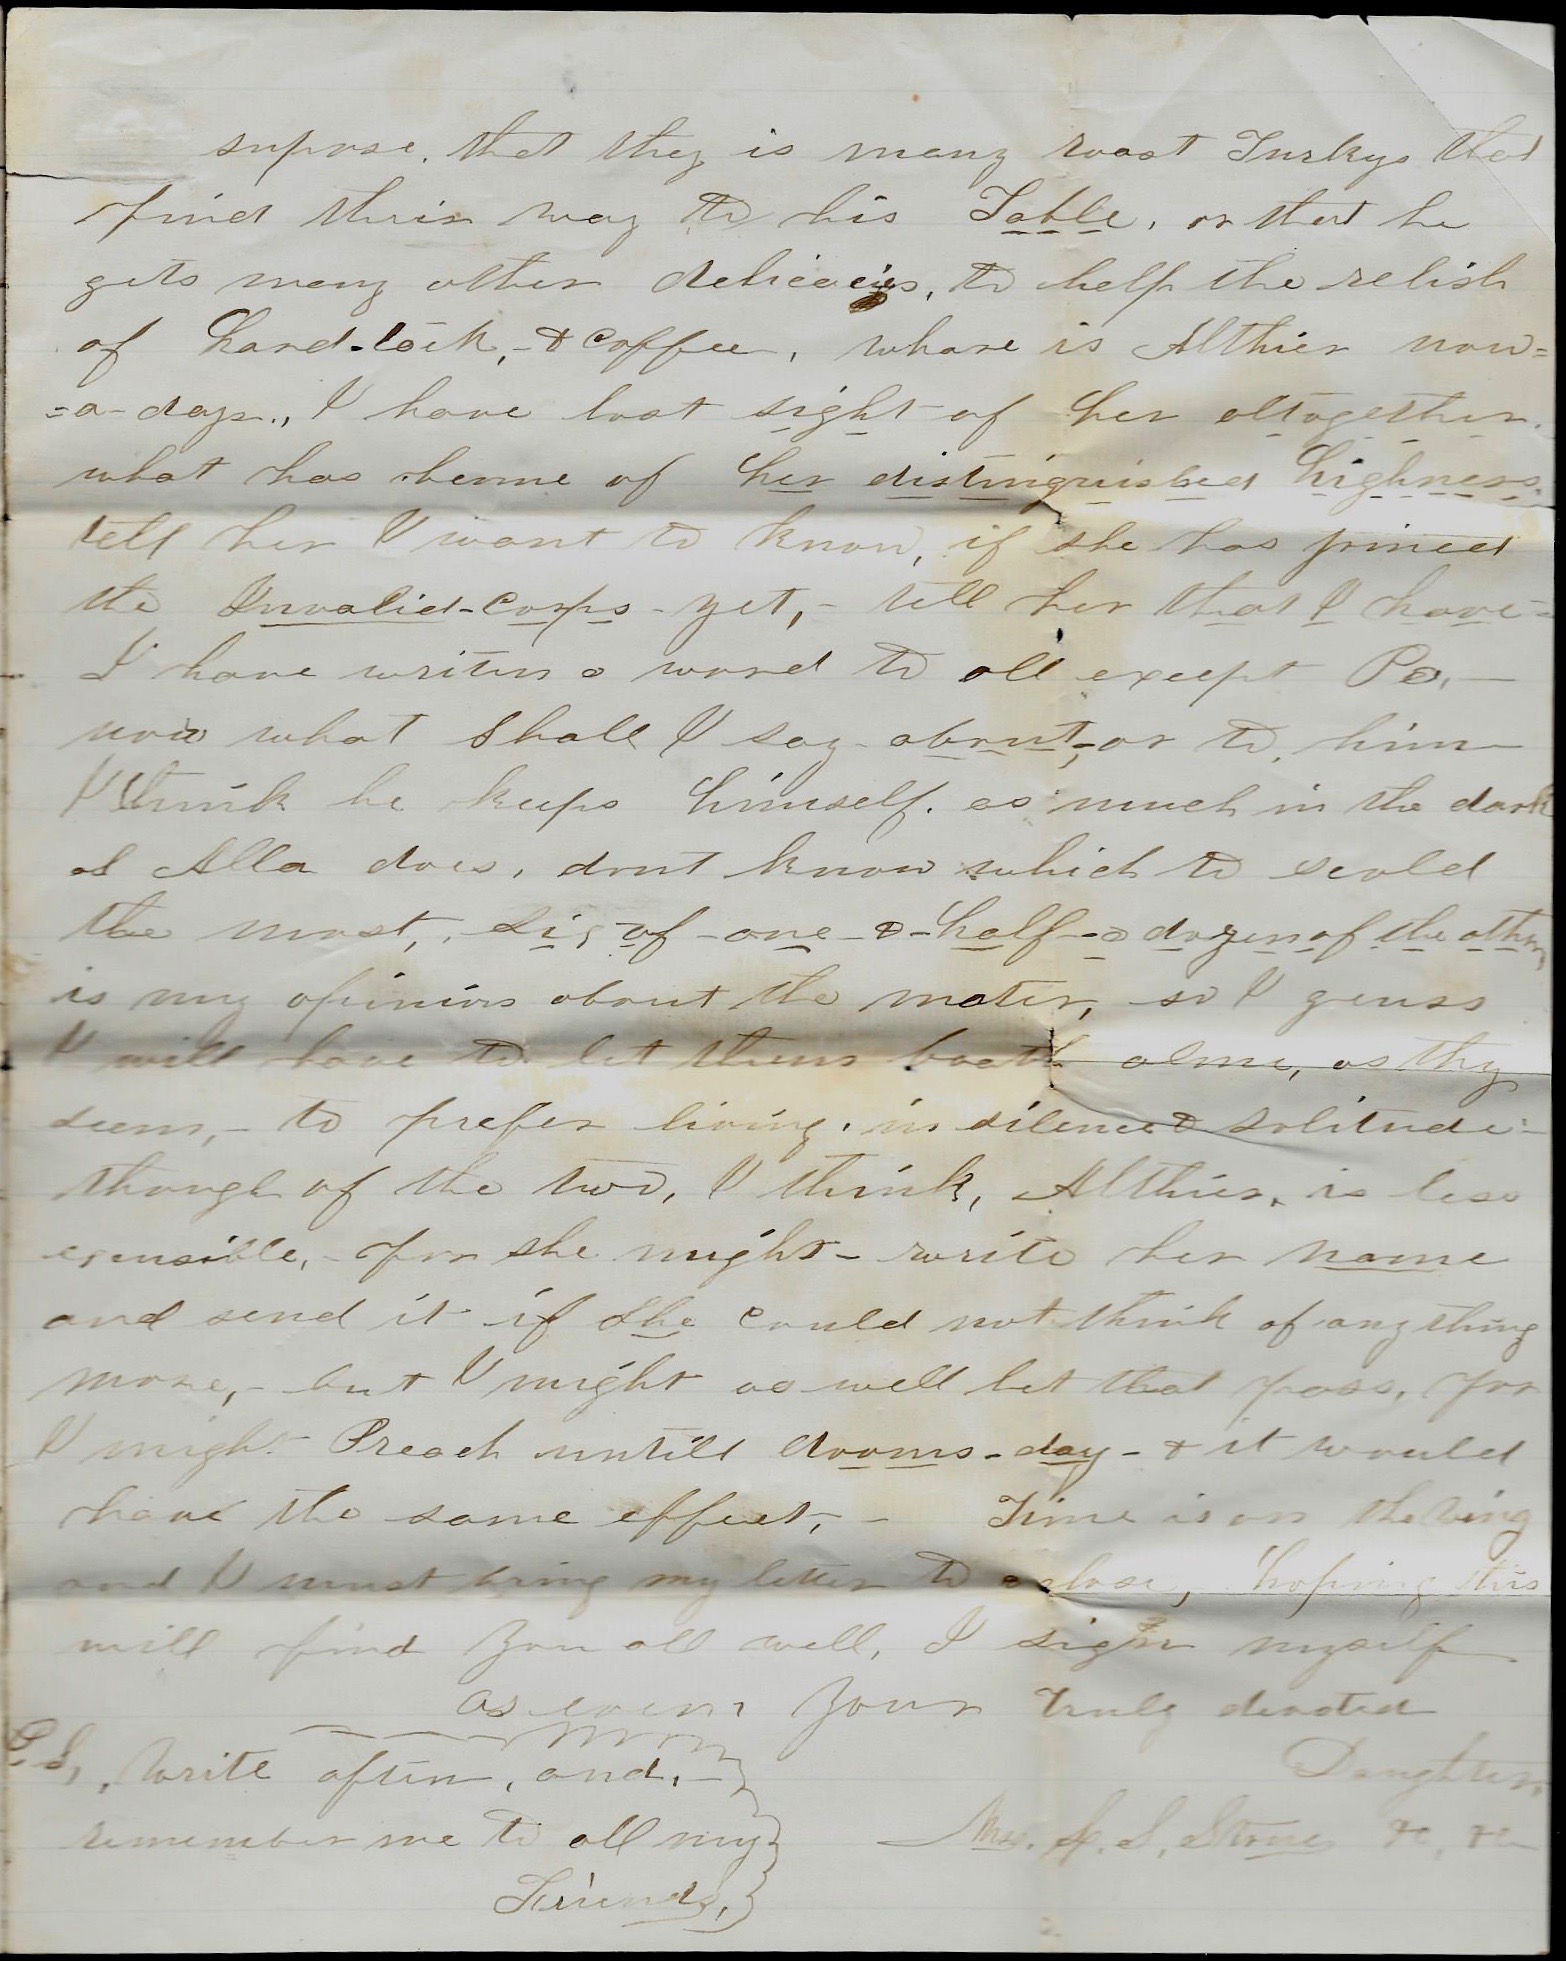 supose, that they is many roast Turkys that
find thier way to his Table, or that he
gets many other delicacies, to help the relish
of hard-tack, & coffee, whare is Althier now=
=a-days., I have lost sight of her altogether,
what has become of her distinguished highness,
tell her I want to know, if she has joined
the Invalid-Corps-yet,- tell her that I have-
I have writen a word to all except Pa,-
now what shall I say-about,-or to, him
I think he keeps himself. as much in the dark
as Alla does, dont know which to scold
the most,, six-of-one-&-half-a dozen of the other,
is my opinion about the mater, so I guess
I will have to let them boath alone, as they
seem,- to prefer living, in silence & solitude-
though of the two, I think, Althier, is less
excusible,- for she might- write her name
and send it if she could not think of anything
more,- but I might as well let that pass, for
I might- Preach untill dooms-day-& it would
have the same effect,- Time is on the wing
and I must bring my letter to a close, hoping this
will find you all well, I sign myself
as ever your truly devoted
Daughter,
P.S,, write often, and,-
remember me to all my
Friends,
Mrs. S. Stone &c, &c